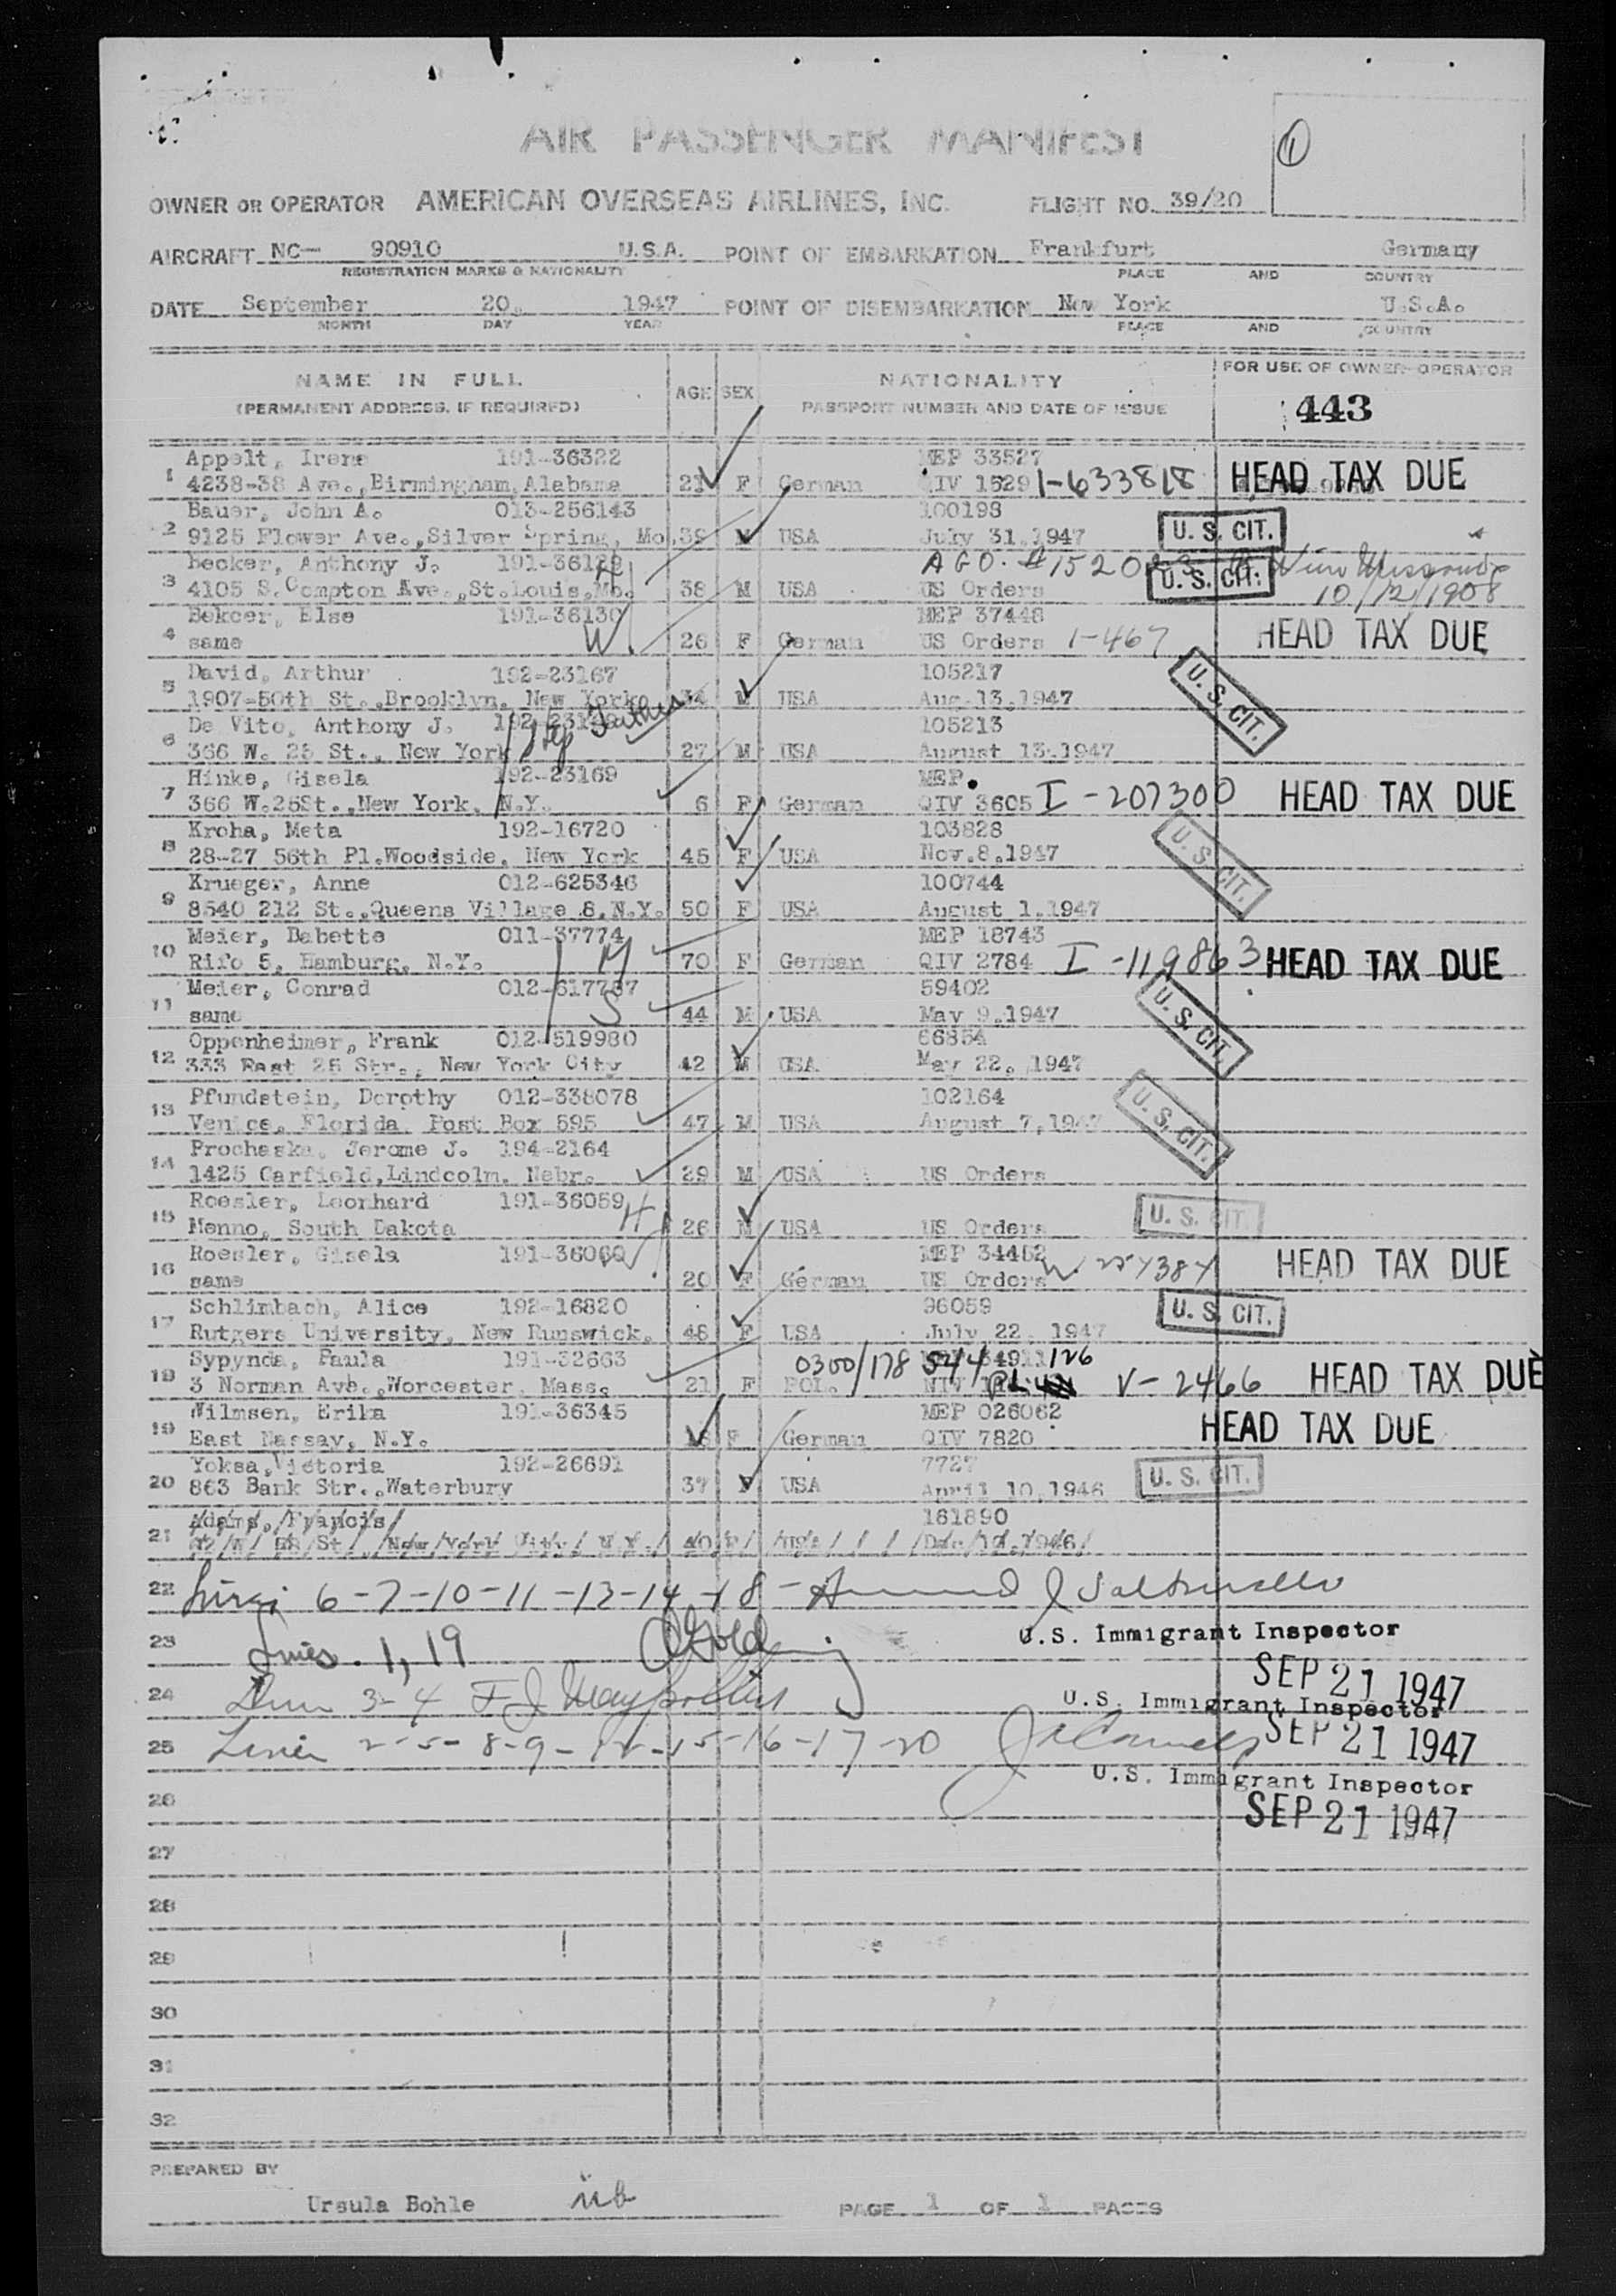 AIR PASSENGER MANIFEST
1
OWNER OR OPERATOR AMERICAN OVERSEAS AIRLINES, INC. FLIGHT NO. 39/20
AIRCRAFT NC— 90910 U.S.A. POINT OF EMBARKATION Frankfurt Germany
REGISTRATION MARKS & NATIONALITY PLACE AND COUNTRY
DATE September 20. 1947 POINT OF DISEMBARKATION New York U.S.A.
MONTH DAY YEAR PLACE AND COUNTRY
NAME IN FULL AGE SEX NATIONALITY FOR USE OF OWNER-OPERATOR
(PERMANENT ADDRESS, IF REQUIRED) PASSPORT NUMBER AND DATE OF ISSUE
443
Appelt, Irene 191-36322 MEP 33527
1 4238-38 Ave.,Birmingham,Alabama F German QIV 1529 1-633818 HEAD TAX DUE
Bauer, John A. 013-256143 100193
2 9125 Flower Ave.,Silver Spring, Mo. 39 M USA July 31.1947 U. S. CIT.
Becker, Anthony J. 191-36129 AGO.
3 4105 S.Compton Ave.,St.Louis,Mo. 38 M USA US Orders U. S. CIT. 10/12/1908
Bekcer, Else 191-36130 MEP 37448
4 same W 26 F German US Orders 1-467 HEAD TAX DUE
David, Arthur 192-23167 105217
5 1907-50th St.,Brooklyn, New York. 34 M USA Aug.13.1947 U. S. CIT.
De Vito, Anthony J. Step Father 105213
6 366 W. 25 St., New York 27 M USA August 13.1947
Hinke, Gisela 192-23169 MEP
7 366 W.25St.,New York, N.Y. 6 F German QIV 3605 I-207300 HEAD TAX DUE
Kroha, Meta 192-16720 103828
8 28-27 56th Pl.Woodside, New York 45 F USA Nov.8.1947 U. S. CIT.
Krueger, Anne 012-625346 100744
9 8540 212 St.,Queens Village 8,N.Y. 50 F USA August 1.1947
Meier, Babette 011-37774 M MEP 18743
10 Rifo 5, Hamburg, N.Y. 70 F German QIV 2784 I-119863 HEAD TAX DUE
Meier, Conrad 012-617737 59402
11 same S 44 M USA May 9.1947 U. S. CIT.
Oppenheimer, Frank 012-519980 66854
12 333 East 25 Str., New York City 42 M USA May 22. 1947
Pfundstein, Dorothy 012-338078 102164
13 Venice, Florida, Post Box 595 47 M USA August 7,1947 U. S. CIT.
Prochaska, Jerome J. 194-2164
14 1425 Garfield,Lindcolm, Nebr. 29 M USA US Orders
Roesler, Leonhard 191-36059 H
15 Menno, South Dakota 26 M USA US Orders U. S. CIT.
Roesler, Gisela 191-36060 W MEP 34452
16 same 20 F German US Orders HEAD TAX DUE
Schlimbach, Alice 192-16820 96059
17 Rutgers University, New Runswick. 46 F USA July 22. 1947 U. S. CIT.
Sypynda, Paula 191-32663 0300/178 544 126
18 3 Norman Ave.,Worcester, Mass. 21 F POL. NIV V-2466 HEAD TAX DUE
Wilmsen, Erika 191-36345 MEP 026062
19 East Nassay, N.Y. F German QIV 7820 HEAD TAX DUE
Yoksa,Victoria 192-26691 7727
20 863 Bank Str.,Waterbury 37 F USA April 10.1946 U. S. CIT.
Adams, Francis 161890
21 St. New York City N.Y. 40 USA
22 6-7-10-11-13-14-18-
23 Lines. 1, 19 U.S. Immigrant Inspector
SEP 21 1947
24 3-4 U.S. Immigrant Inspector
25 2-5-8-9-12-15-16-17-20 SEP 21 1947
U.S. Immigrant Inspector
26 SEP 21 1947
27
28
29
30
31
32
PREPARED BY
Ursula Bohle üb PAGE 1 OF 1 PAGES